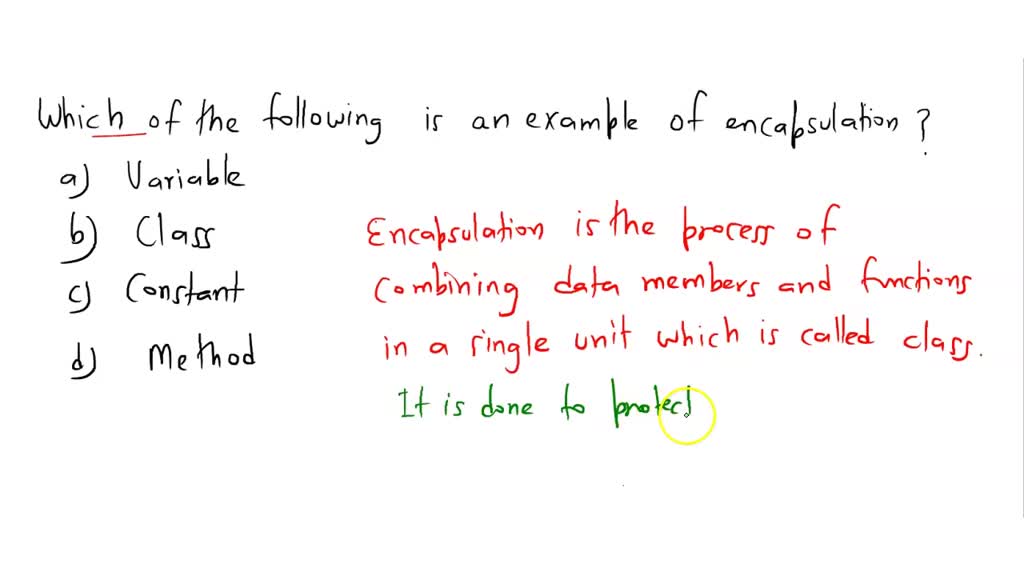 Which of the following is an example of encapsulation?
a) Variable
b) Class
c) Constant
d) Method
Encapsulation is the process of
combining data members and functions
in a single unit which is called class.
It is done to protect